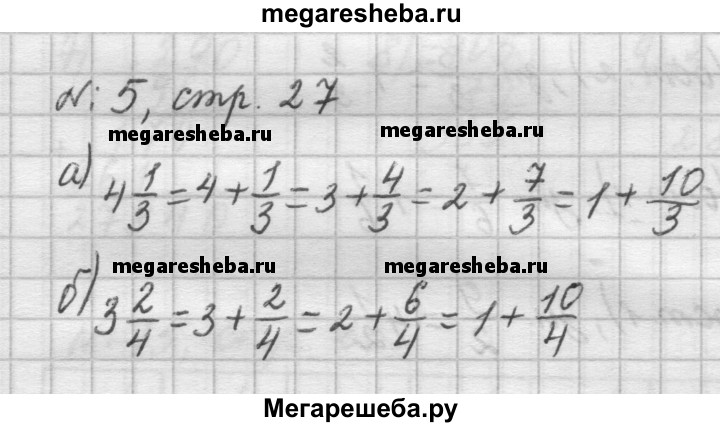 megaresheba.ru
№ 5, стр. 27
megaresheba.ru megaresheba.ru
а) 4 1/3 = 4 + 1/3 = 3 + 4/3 = 2 + 7/3 = 1 + 10/3
megaresheba.ru megaresheba.ru
б) 3 2/4 = 3 + 2/4 = 2 + 6/4 = 1 + 10/4
Мегарешеба.ру